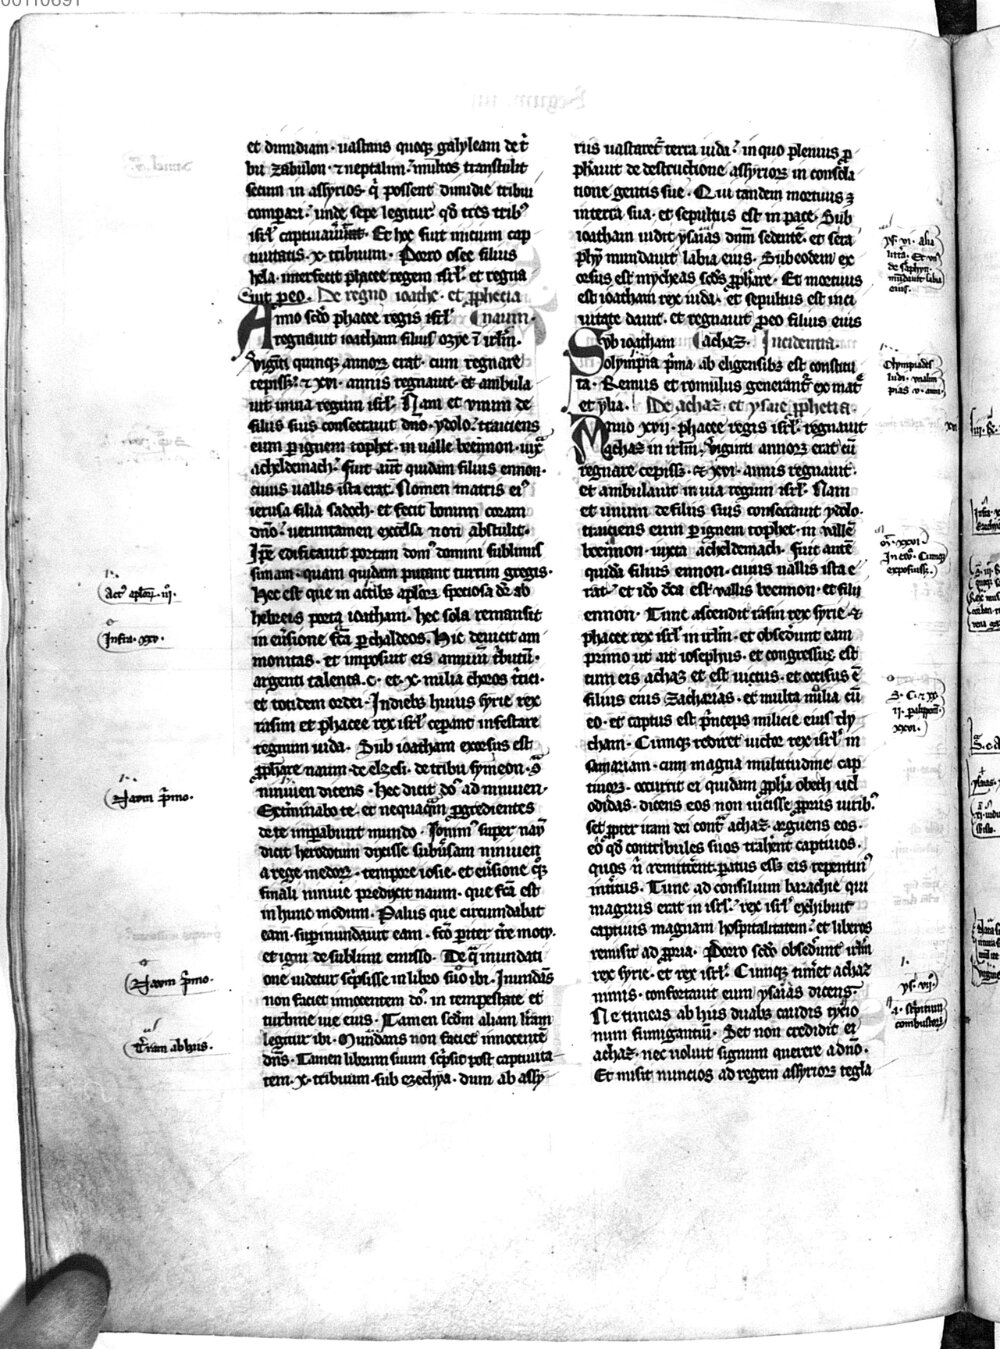 et dimidiam · uastans quoq; galyleam de t̾
bu zabulon · ⁊ neptalim · multos transtulit
secum in assyrios · q̾ possent dimidie tribui
comparari · unde sepe legitur qđ tres trib⁹
isrl̾ captiuauit · Et hec fuit inicium cap
tiuitatis · x · tribuum · Porro osee filius
hela · interfecit phacee regem isrl̾ · et regna
uit p̾ eo · De regno ioathe · et ꝓphecia
Anno sc̄do phacee regis isrl̾ · naum ·
regnauit ioatham filius ozye ī irl̄m ·
viginti quinq; annoꝝ erat · cum regnare
cepiss; · ⁊ xvi · annis regnauit · et ambula
uit in uia regum isrl̾ · Nam et vnum de
filiis suis consecrauit dño · ydolo · traiciens
eum ꝑ ignem tophet · in ualle beennon · iux̄
acheldemach · fuit aut̄ quidam filius ennon ·
cuius uallis ista erat · Nomen matris ei⁹
ierusa filia sadoch · et fecit bonum coram
dño · ueruntamen excelsa non abstulit ·
Ip̄e edificauit portam dom⁹ domini sublimis
simam · quam quidam putant turrim gregis ·
Hec est que in actib; apl̄oꝝ speciosa dr̄ ab
hebreis porta ioatham · hec sola remansit
in euersione fc̄a ꝑ chaldeos · Hic deuicit am
monitas · et imposuit eis annuum tributū ·
argenti talenta · c · et · x · milia choros tritici ·
et totidem ordei · In dieb; huius syrie rex
rasim et phacee rex isrl̾ ceperunt infestare
regnum iuda · Sub ioatham exorsus est
ꝓph̄are naum · de elzesi · de tribu symeon · 9̄
niniuen dicens · Hec dicit dō⁹ ad niniuen ·
Exterminabo te · et nequaq̄m ꝓgredientes
de te imperabunt mundo · Ieronim⁹ super naū
dicit herodotum dixisse subuersam niniuen
a rege medoꝝ · tempore iosie · et euersione q̄;
finali niniue predixit naum · que fc̄a est
in hunc modum · Palus que circumdabat
eam · superinundauit eam · fc̄o pariter tr̄e motu ·
et igni desublimi emisso · De q̄ inundati
one uidetur scripsisse in libro suo ibi · Inundās
non faciet innocentem dō⁹ · in tempestate et
turbine uie eius · Tamen sc̄dm aliam litteram
legitur ibi · Mundans non faciet innocentē
dn̄s · Tamen librum suum scripsit post captiuita
tem · x · tribuum · sub ezechya · dum ab assy
rus uastaret̄ terra iuda · in quo plenius ꝓ
ph̄auit de destructione assyrioꝝ in consola
tione gentis sue · Qui tandem mortuus ē
in terra sua · et sepultus est in pace · Sub
ioatham uidit ysaias dn̄m sedentē · et sera
phyn mundauit labia eius · Sub eodem ex
orsus est mycheas sc̄ds ꝓph̄are · Et mortuus
est ioatham rex iuda · et sepultus est in ci
uitate dauit · et regnauit p̾ eo filius eius
Sub ioatham achaz · Incidentia ·
olympia p̄ma · ab eligensib; est constitu
ta · Remus et romulus generant̄ ex marte
et ylia · De achaz · et ysaie ꝓphetia ·
Anno xvii · phacee regis isrl̾ · regnauit
achaz in irl̄m · viginti annoꝝ erat cū
regnare cepiss; · ⁊ xvi · annis regnauit ·
et ambulauit in uia regum isrl̾ · Nam
et unum de filiis suis consecrauit ydolo ·
traiciens eum ꝑ ignem tophet · in ualle
beennon · iuxta acheldemach · fuit autē
quidā filius ennon · cuius uallis ista e
rat · et ido dc̄a est uallis beennon · et filii
ennon · Tunc ascendit rasin rex syrie ⁊
phacee rex isrl̾ in irl̄m · et obsederunt eam
primo ut ait iosephus · et congressus est
cum eis achaz et est uictus · et occisus ē
filius eius zacharias · et multa milia cū
eo · et captus est princeps milicie eius ely
cham · Cumq; rediret uictor rex isrl̾ in
samariam · cum magna multitudine cap
tiuoꝝ · occurrit ei quidam ꝓph̄a obeth uel
odidas · dicens eos non uicisse ꝓpriis uirib; ·
set ꝓpter iram dei contra achaz · arguens eos ·
eo qđ contribules suos traherent captiuos ·
quos n̄ remitterent · paratus ess; eis repentin⁹
interitus · Tunc ad consilium barachie qui
magnus erat in isrl̾ · rex isrl̾ exhibuit
captiuis magnam hospitalitatem · et liberos
remisit ad ꝓpria · Porro sc̄do obsederunt irl̄m
rex syrie · et rex isrl̾ · Cumq; timeret achaz
nimis · confortauit eum ysaias dicens ·
Ne timeas ab hiis duab; caudis ticio
num fumigantium · Set non credidit ei
achaz · nec uoluit signum querere a dño ·
Et misit nuncios ad regem assyrioꝝ tegla
Act⁹ apl̄oꝝ · iij ·
Infra · xxv ·
Naum p̄mo ·
Naum p̄mo ·
t̄ram ab hiis ·
ys · vi · alia
litt̄a · Et vn⁹
de saphyn ·
mūdauit labia
eius ·
Olympiades
ludi
pias · v · anni ·
In eođ · Cumq;
exposuiss; ·
ii · palipom̄ ·
xxvi ·
ys · vij ·
combustoꝝ